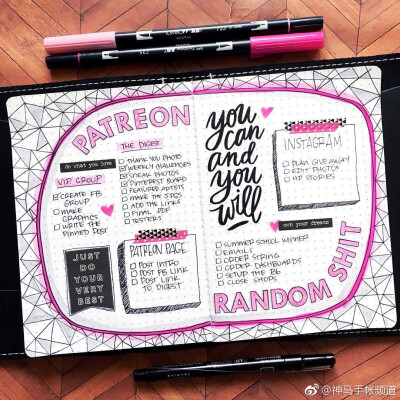 PATREON
do what you love
VIP GROUP
CREATE FB
GROUP
MAKE
GRAPHICS
WRITE THE
PINNED POST
JUST
DO
YOUR
VERY
BEST
THE DIGEST
THANK YOU PHOTO
WEEKLY CHALLENGES
SNEAK PHOTOS
PINTEREST BOARD
FEATURED ARTISTS
MAKE THE JPGS
ADD THE LINKS
FINAL PDF
TESTERS
PATREON PAGE
POST INTRO
POST FB LINK
POST LINK
TO DIGEST
you
can
and
you
will
INSTAGRAM
PLAN GIVE AWAY
EDIT PHOTOS
own your dreams
SUMMER SCHOOL WINNER
EMAILS
ORDER STRING
ORDER DASHBOARDS
SETUP THE B6
CLOSE SHOPS
RANDOM SHIT
@神马手帐频道